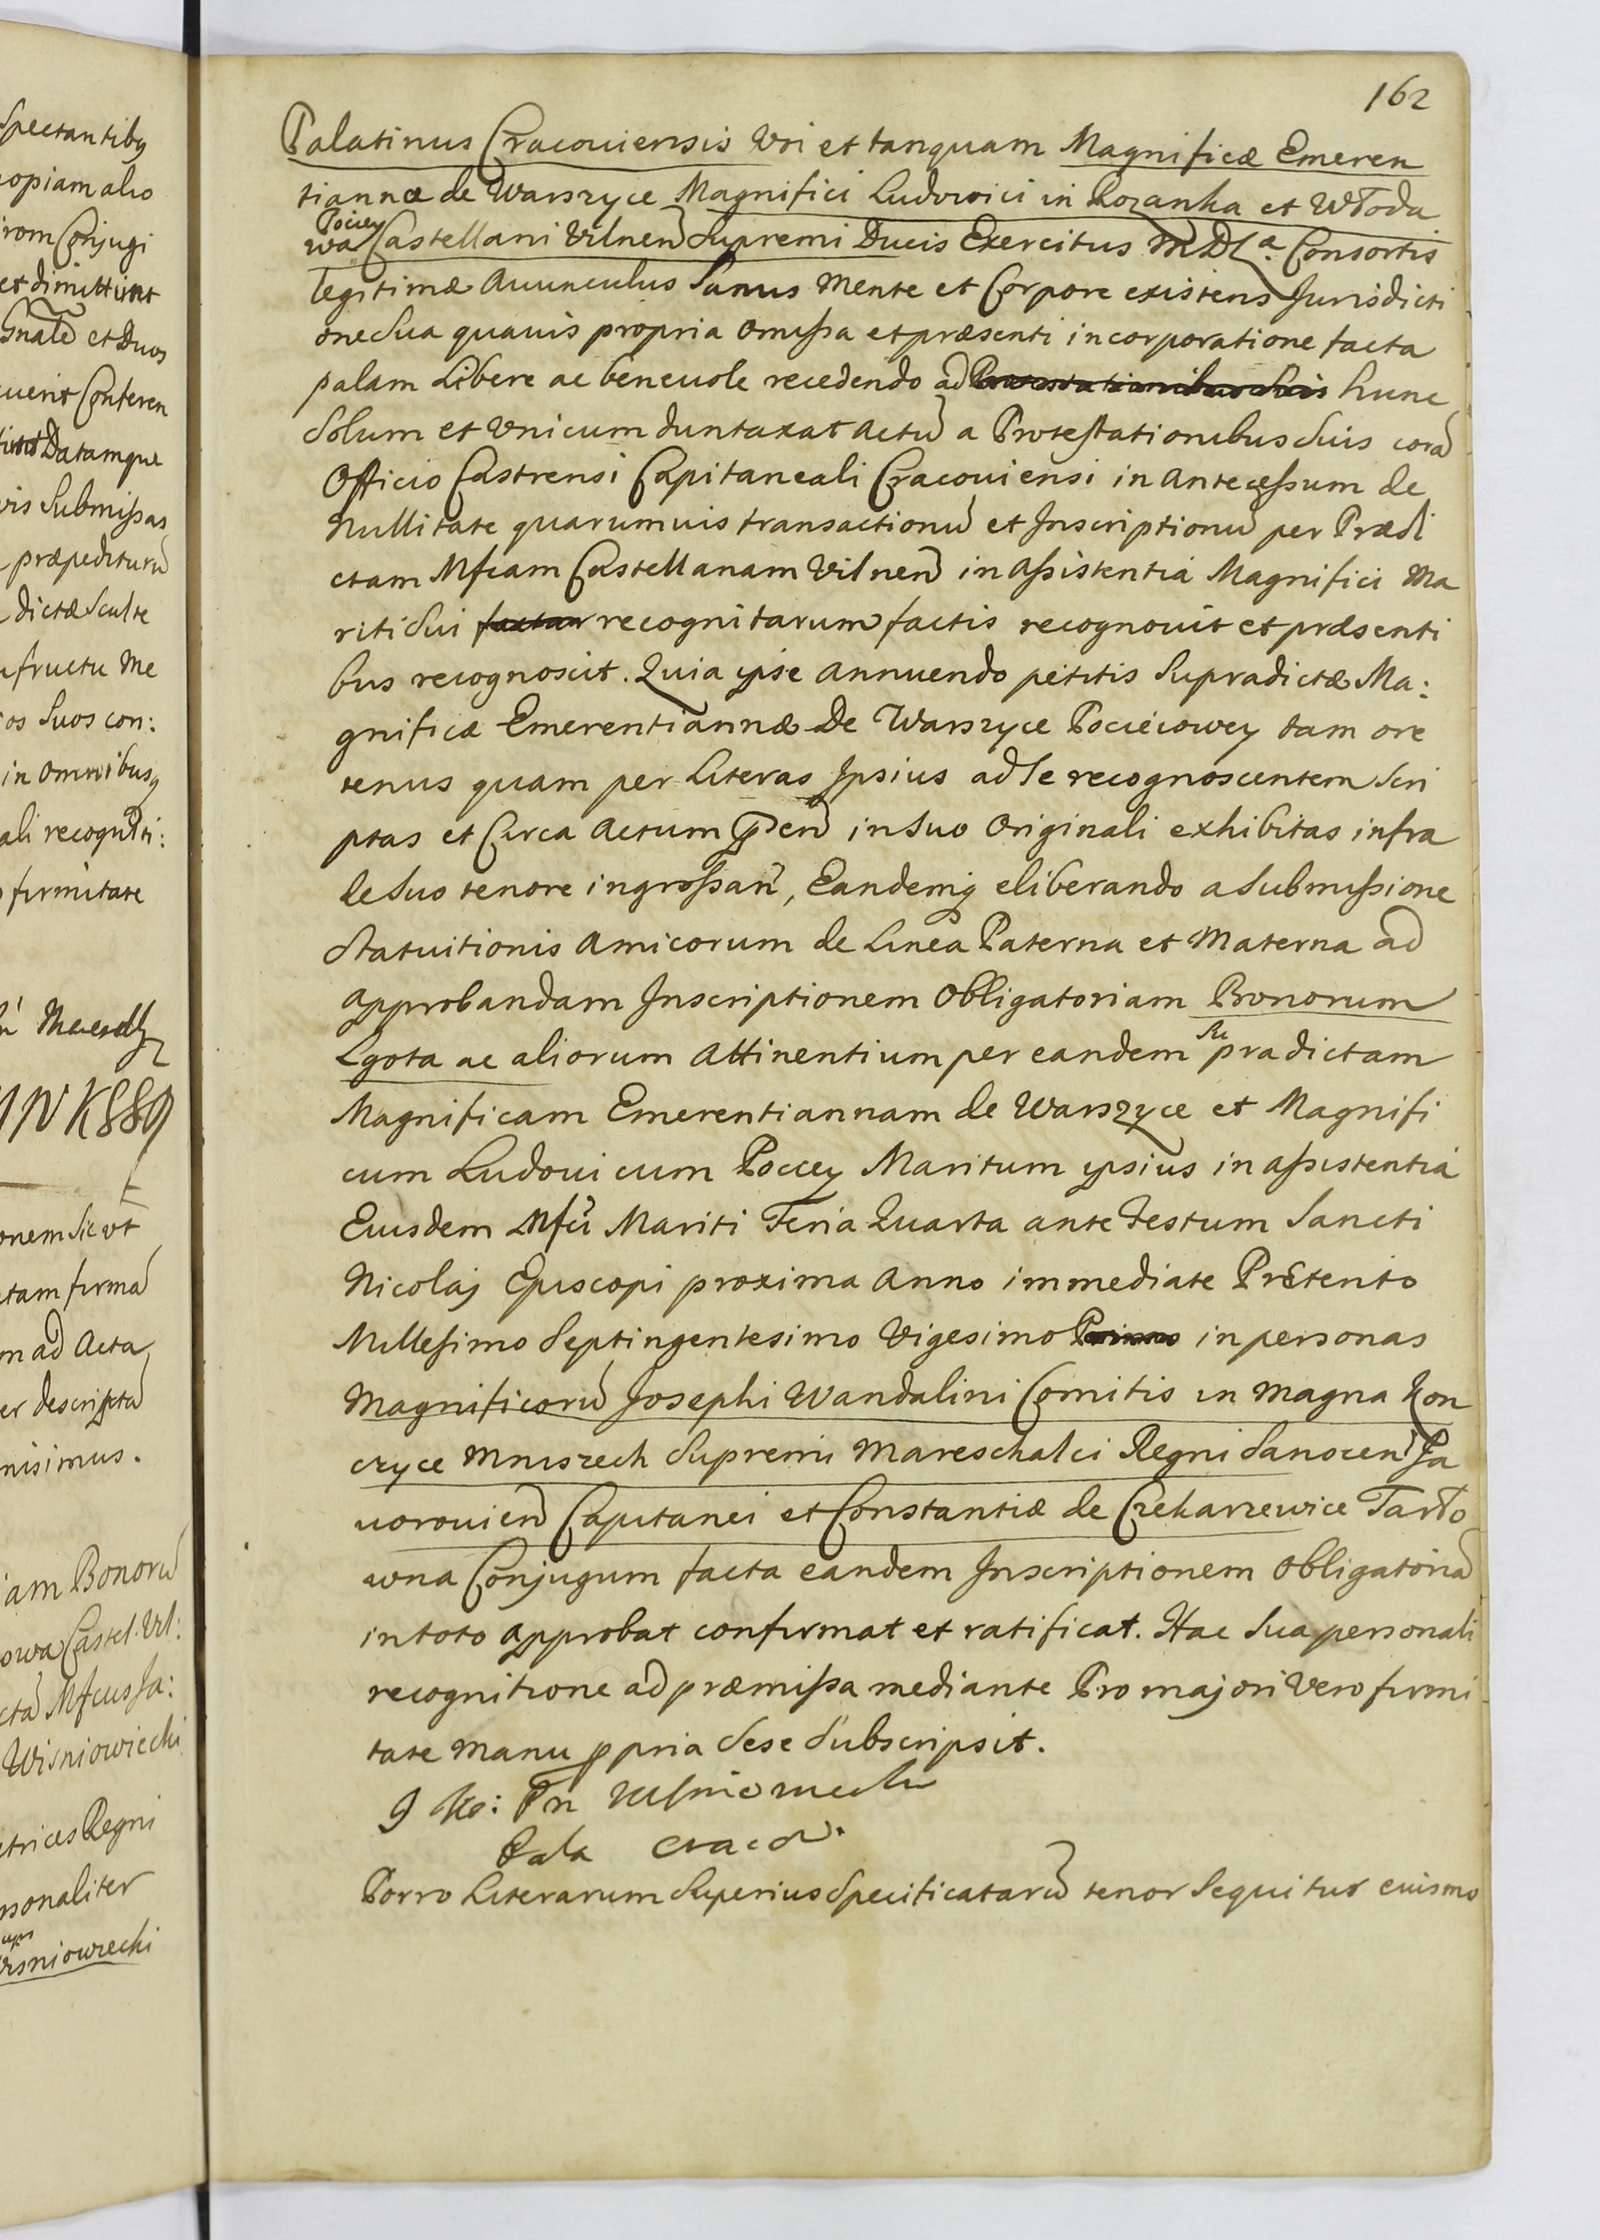 Spectantibq
opiam alio
irom Conjugi
et dimittunt
Gnale et Duos
uerit Conferen
Datamque
vis Submissas
præpediturũ
dictæ Sculte
ufructu Me
os Suos con:
in omnibusq
ali recogniti:
firmitate
onem Sic ut
tam firmã
m ad Acta
er descriptã
nisimus.
iam Bonorũ
owa Castel. Vil:
ctã Mfcus Ja:
Wisniowiecki
etrices Regni
rsonaliter
isniowiecki
162
Palatinus Cracouiensis Vti et tanquam Magnificæ Emeren
tiannæ de Warszyce Magnifici Ludovici in Rozanka et Włoda
Pociey
wa Castellani Vilnen Supremi Ducis Exercitus M D L a. Consortis
legitimæ Auunculus Sanus Mente et Corpore existens Jurisdicti
one Sua quauis propria omissa et præsenti incorporatione facta
palam Libere ac beneuole recedendo ad Protestationibus Suis hunc
Solum et Vnicum duntaxat actũ a Protestationibus Suis corã
Officio Castrensi Capitaneali Cracouiensi in antecessum de
Nullitate quarumuis transactionũ et Inscriptionũ per Prædi
ctam Mfcam Castellanam Vilnen in assistentia Magnifici Ma
riti Sui factar recognitarum factis recognouit et præsenti
bus recognoscit. Quia ipse annuendo petitis Supradictæ Ma:
gnificæ Emerentiannæ De Warszyce Pocieiowey tam ore
tenus quam per Literas Ipsius ad se recognoscentem Scri
ptas et Circa Actum pñ in Suo Originali exhibitas infra
de Suo tenore ingrossañ, Eandemq eliberando a Submissione
Statuitionis Amicorum de Linea Paterna et Materna ad
approbandam Inscriptionem Obligatoriam Bonorum
Lgota ac aliorum Attinentium per eandem
Su
pradictam
Magnificam Emerentiannam de Warszyce et Magnifi
cum Ludouicum Pociey Maritum ipsius in assistentia
Eiusdem Mfci Mariti Feria Quarta ante Festum Sancti
Nicolaj Episcopi proxima Anno immediate Præterito
Millesimo Septingentesimo Vigesimo Primo in personas
Magnificorũ Josephi Wandalini Comitis in Magna Kon
czyce Mniszech Supremi Mareschalci Regni Sanocen Ja
uorouien Capitanei et Constantiæ de Czekarzewice Tarło
wna Conjugum facta eandem Inscriptionem Obligatoriã
in toto approbat confirmat et ratificat. Hac Sua personali
recognitione ad præmissa mediante Pro majori Vero firmi
tate Manu ppria Sese Subscripsit.
Wisniowiecki
Pala Craco.
Porro Literarum Superius Specificatarũ tenor Sequitur eiusmo